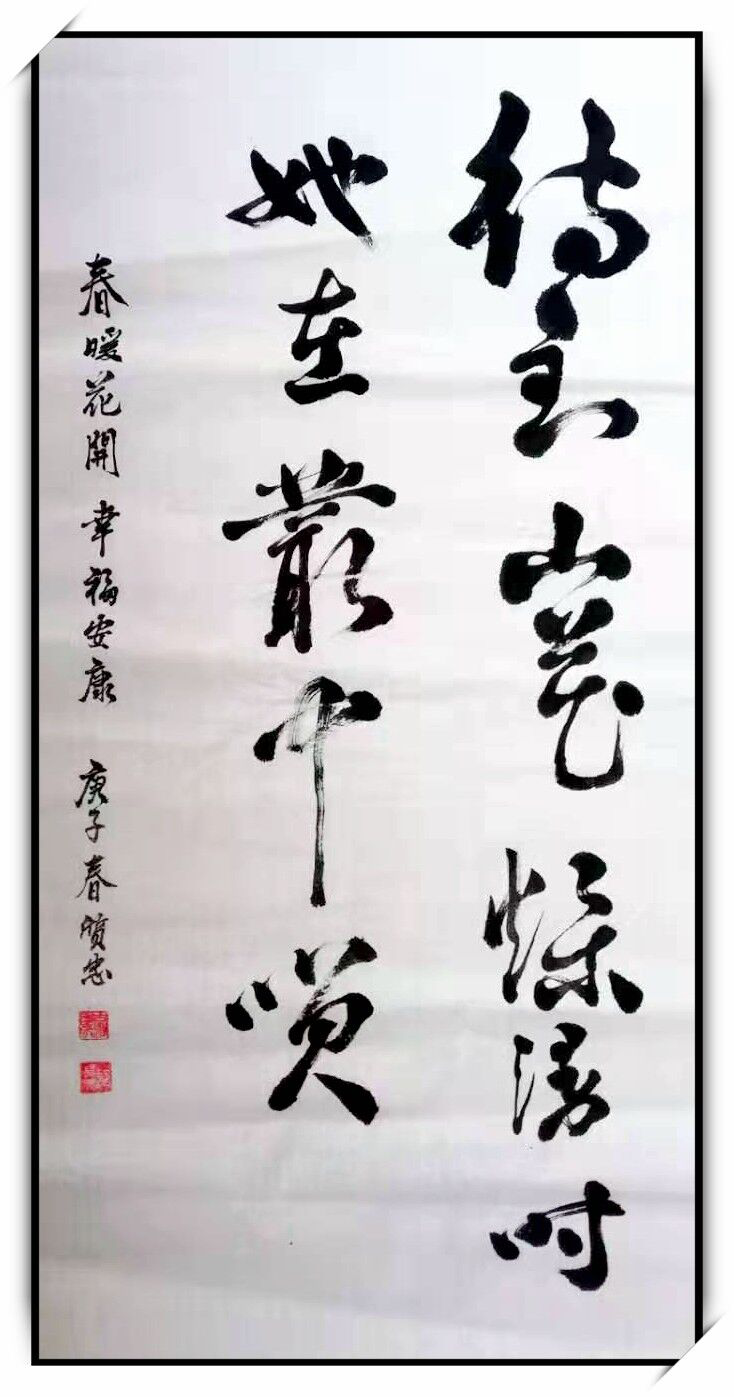 待到山花爛漫时
她在叢中唉
春暖花開 幸福安康 庚子春贤忠